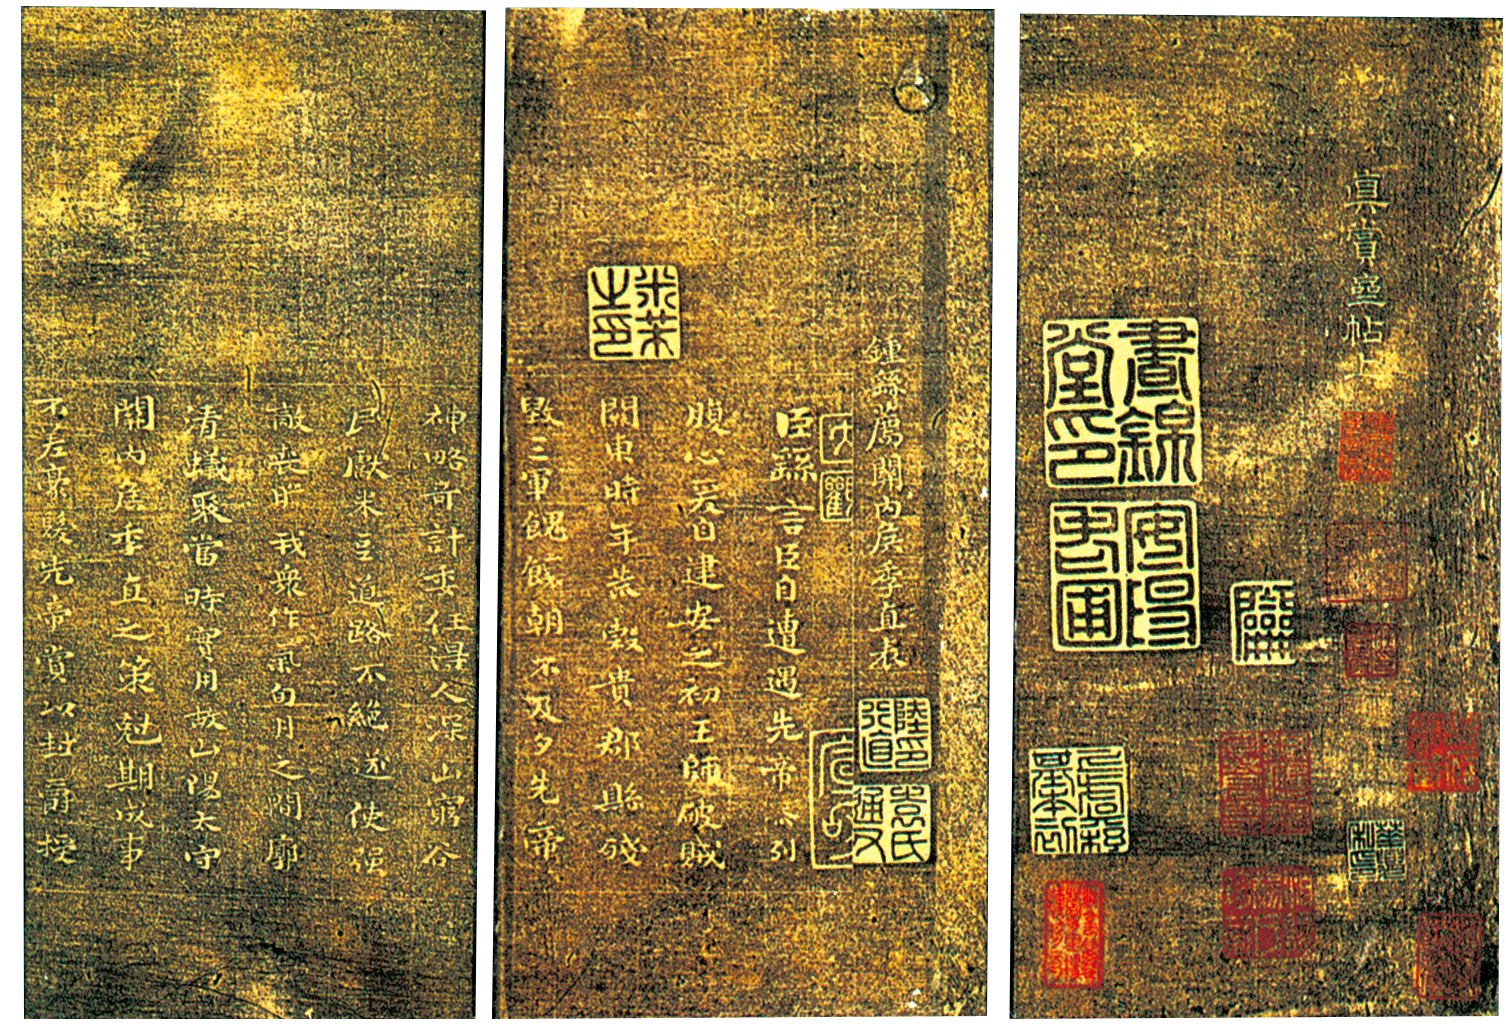 真賞齋帖上
晝錦堂印
安陽老圃
鍾繇薦關內侯季直表
陸印行直
米芾之印
臣繇言臣自遭遇先帝忝列
腹心爰自建安之初王師破賊
關東時年荒穀貴郡縣殘
毀三軍餽饟朝不及夕先帝
神略奇計委任得人深山窮谷
民獻米豆道路不絕遂使强
敵喪膽我衆作氣旬月之間廓
清蟻聚當時實用故山陽太守
關內侯季直之策尅期成事
不差豪髮先帝賞以封爵授